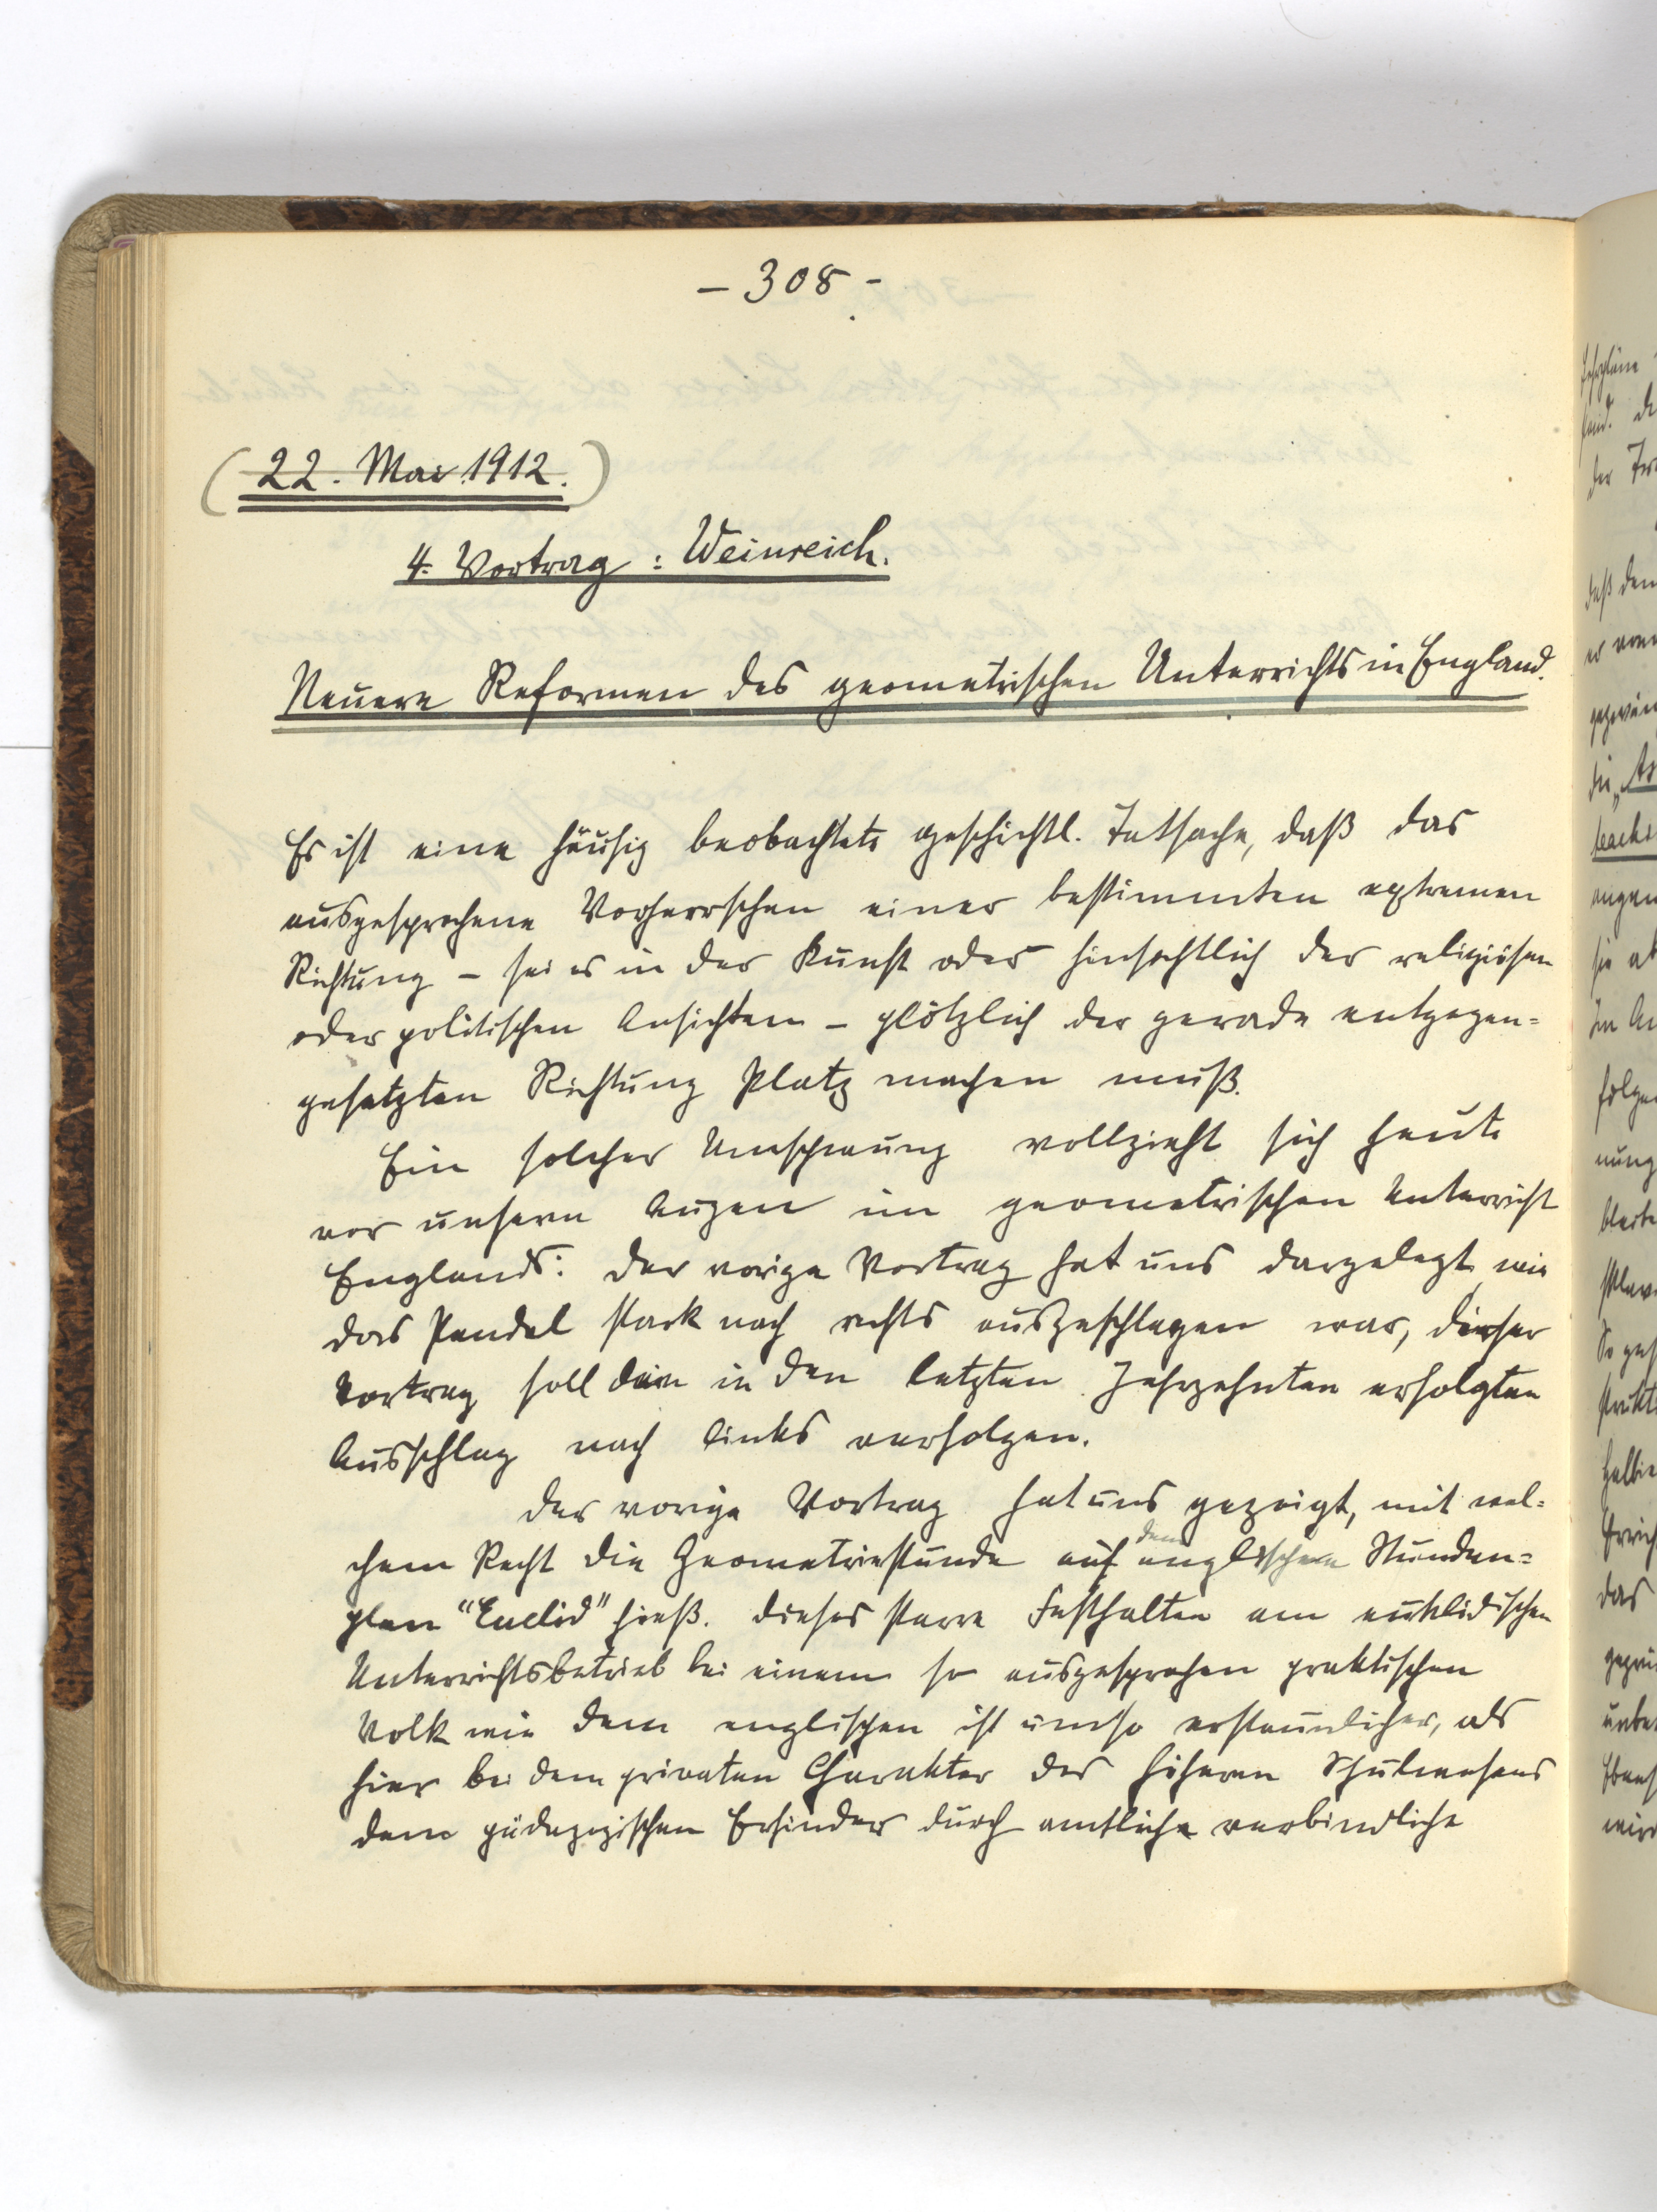 – 308 –
(22. Mai 1912.)
4. Vortrag: Weinreich.
Neuere Reformen des geometrischen Unterrichts in England.
Es ist eine häufig beobachtete geschichtl. Tatsache, daß das
ausgesprochene Vorherrschen einer bestimmten extremen
Richtung – sei es in der Kunst oder hinsichtlich der religiösen
oder politischen Ansichten – plötzlich der gerade entgegen=
gesetzten Richtung Platz machen muß.
Ein solcher Umschwung vollzieht sich heute
vor unsern Augen im geometrischen Unterricht
Englands: Der vorige Vortrag hat uns dargelegt wie
das Pendel stark nach rechts ausgeschlagen war, dieser
Vortrag soll den in den letzten Jahrzehnten erfolgten
Ausschlag nach links verfolgen.
Der vorige Vortrag hat uns gezeigt, mit wel=
chem Recht die Geometriestunde auf dem englischen Stunden=
plan "Euclid" hieß. Dieses starre Festhalten am euklidischen
Unterrichtsbetrieb bei einem so ausgesprochen praktischen
Volk wie dem englischen ist umso erstaunlicher, als
hier bei dem privaten Charakter des höheren Schulwesens
dem pädagogischen Erfinder durch amtliche verbindliche